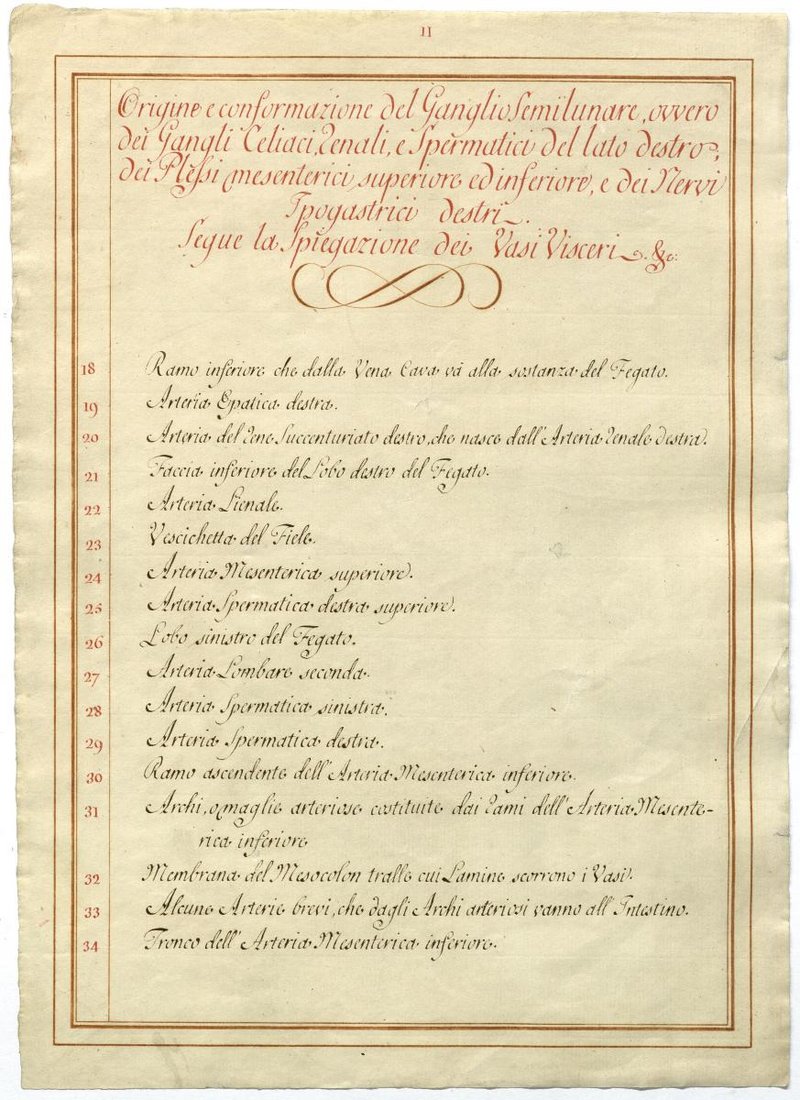 11
Origine e conformazione del Ganglio Semilunare, ovvero
dei Gangli Celiaci, Renali, e Spermatici del lato destro,
dei Plessi mesenterici superiore ed inferiore, e dei Nervi
Ipogastrici destri.
Segue la Spiegazione dei Vasi Visceri &c:
18 Ramo inferiore che dalla Vena Cava va alla sostanza del Fegato.
19 Arteria Epatica destra.
20 Arteria del Rene Succenturiato destro, che nasce dall'Arteria Renale destra.
21 Faccia inferiore del Lobo destro del Fegato.
22 Arteria Lienale.
23 Vescichetta del Fiele.
24 Arteria Mesenterica superiore.
25 Arteria Spermatica destra superiore.
26 Lobo sinistro del Fegato.
27 Arteria Lombare seconda.
28 Arteria Spermatica sinistra.
29 Arteria Spermatica destra.
30 Ramo ascendente dell'Arteria Mesenterica inferiore.
31 Archi, o maglie arteriose costituite dai Rami dell'Arteria Mesente-
rica inferiore
32 Membrana del Mesocolon tralle cui Lamine scorrono i Vasi.
33 Alcune Arterie brevi, che dagli Archi arteriosi vanno all'Intestino.
34 Tronco dell'Arteria Mesenterica inferiore.